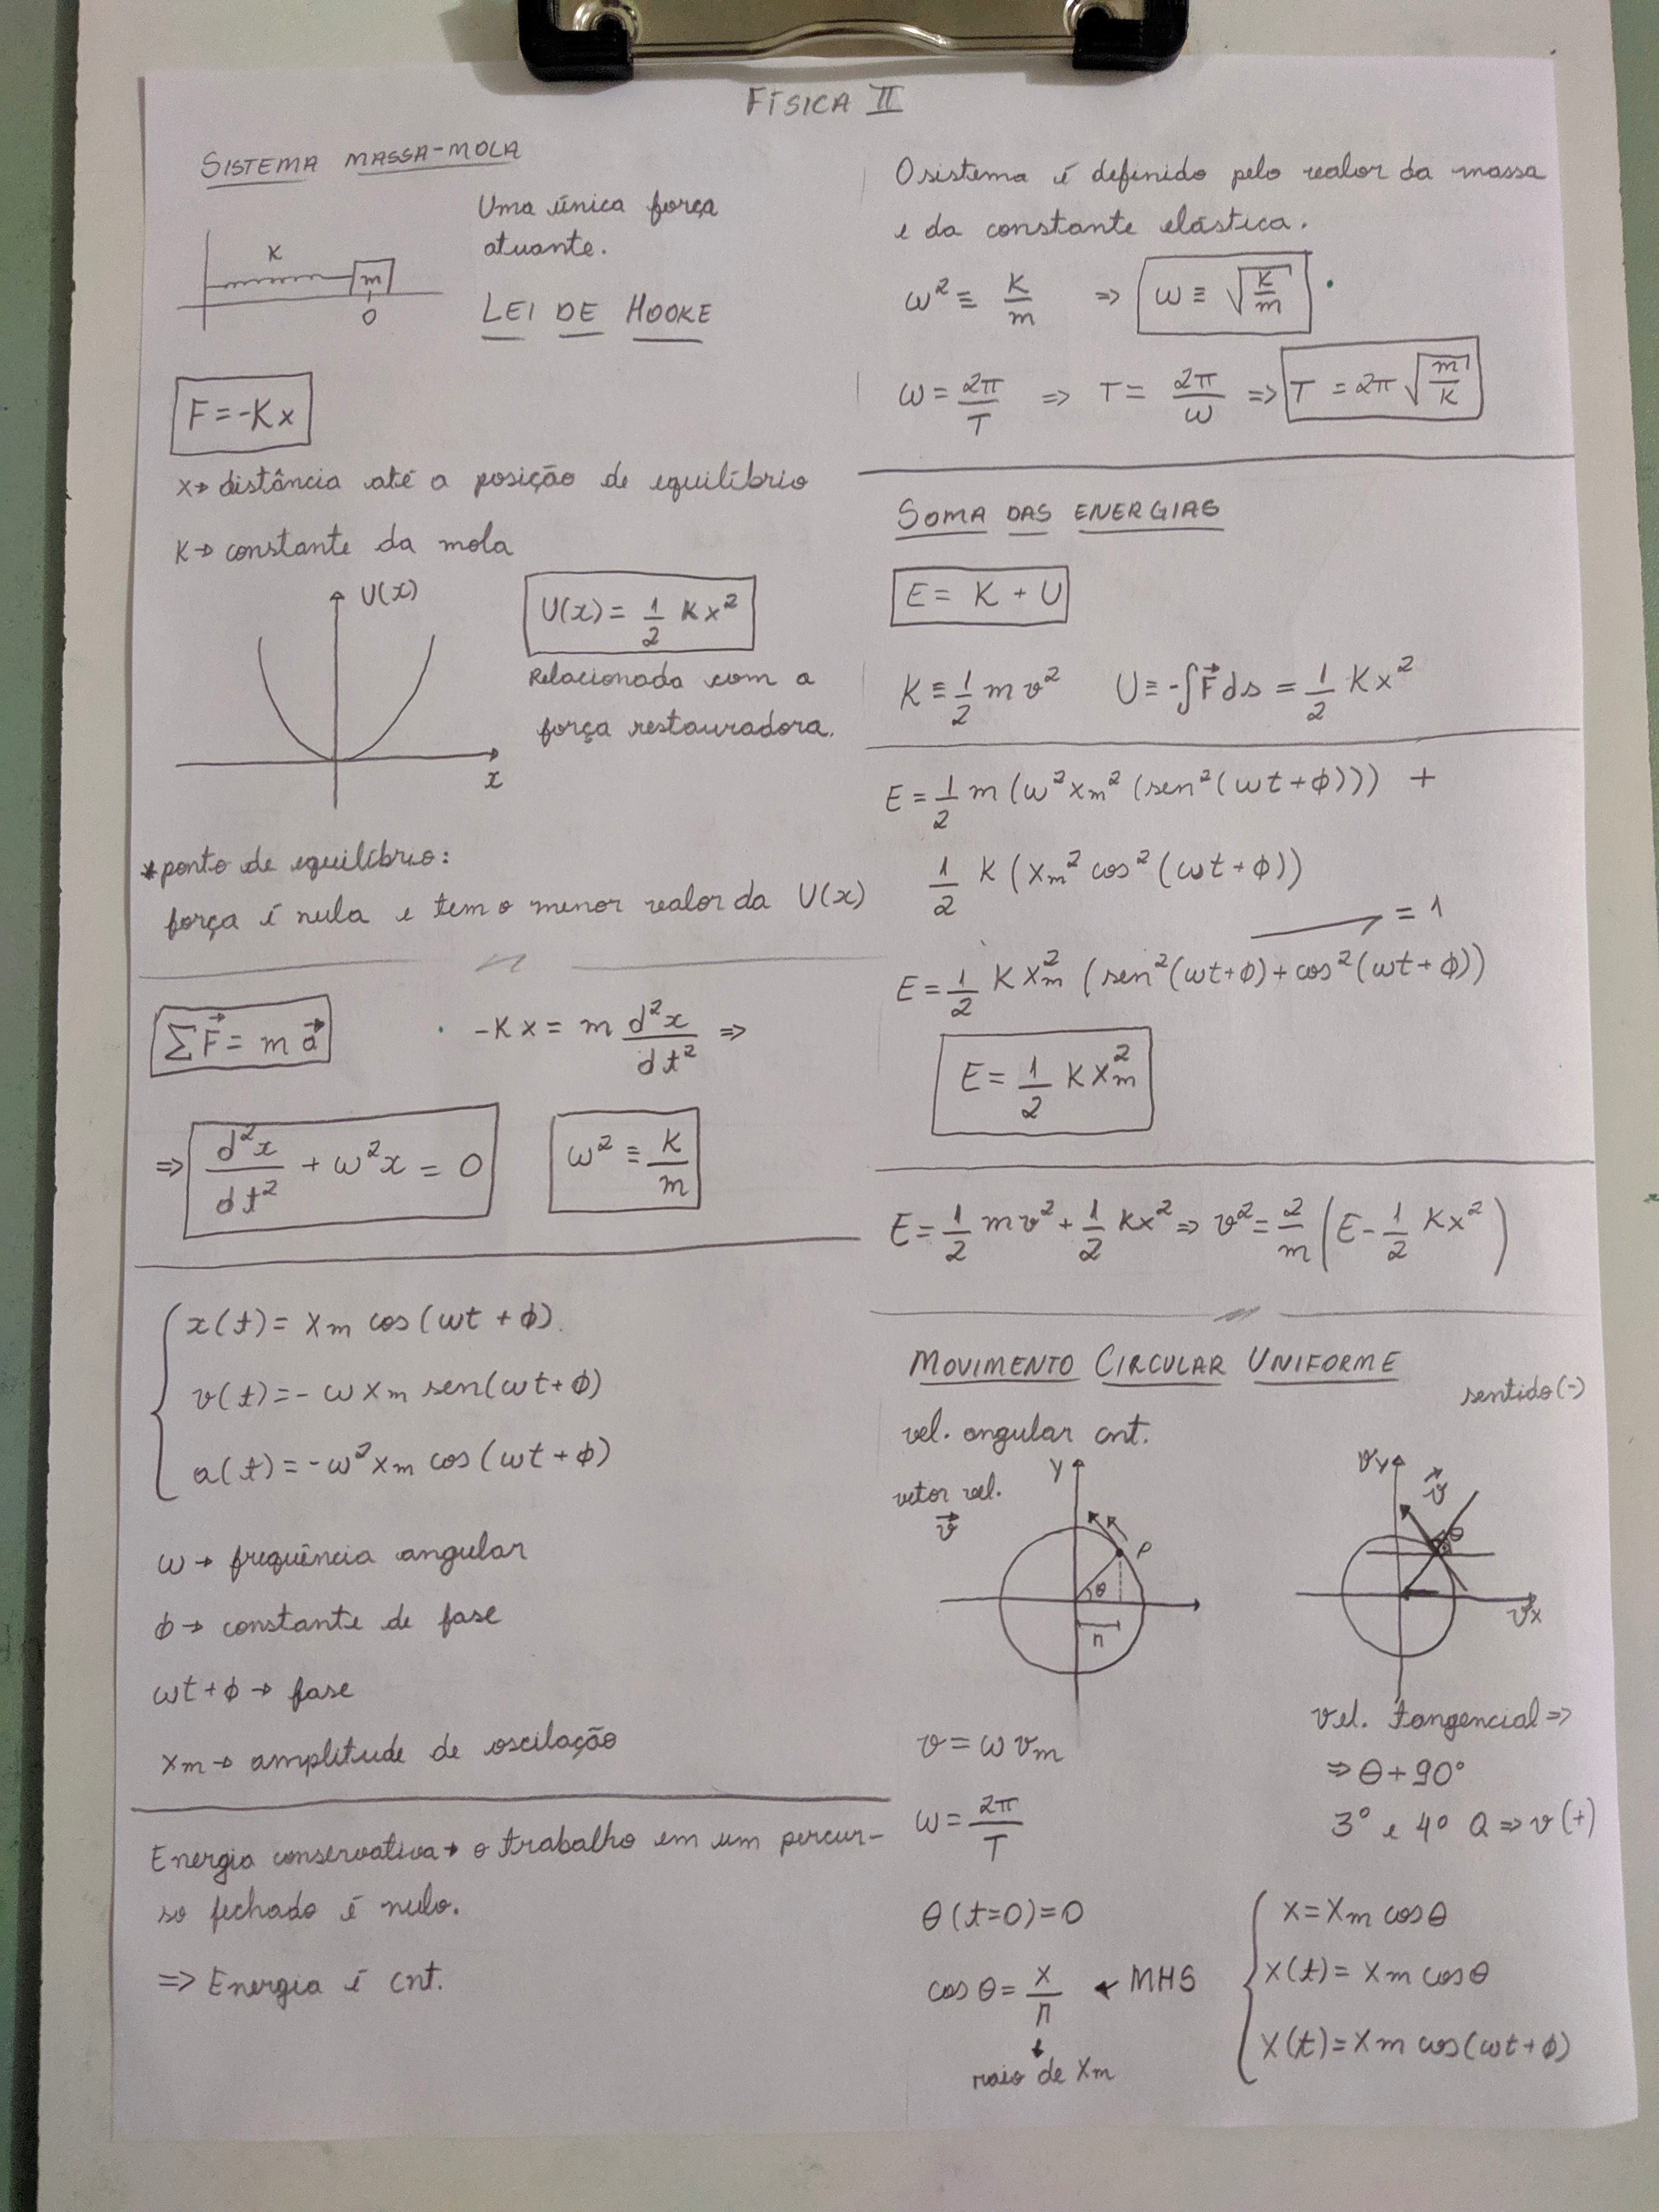 FÍSICA II
SISTEMA MASSA-MOLA
Uma única força
atuante.
K
m
O
LEI DE HOOKE
F = -Kx
x → distância até a posição de equilíbrio
K → constante da mola
U(x)
x
U(x) = 1/2 Kx²
Relacionada com a
força restauradora.
*ponto de equilíbrio:
força é nula e tem o menor valor da U(x)
∑F⃗ = m a⃗
-Kx = m d²x/dt² =>
=> d²x/dt² + ω²x = 0
ω² ≡ K/m
x(t) = xm cos(ωt + ϕ).
v(t) = -ω xm sen(ωt + ϕ)
a(t) = -ω² xm cos(ωt + ϕ)
ω → frequência angular
ϕ → constante de fase
ωt + ϕ → fase
xm → amplitude de oscilação
Energia conservativa → o trabalho em um percur-
so fechado é nulo.
=> Energia é cnt.
O sistema é definido pelo valor da massa
e da constante elástica.
ω² ≡ K/m => ω ≡ √(K/m)
ω = 2π/T => T = 2π/ω => T = 2π √(m/K)
SOMA DAS ENERGIAS
E = K + U
K ≡ 1/2 mv² U ≡ -∫F⃗ds = 1/2 Kx²
E = 1/2 m (ω² xm² (sen²(ωt + ϕ))) +
1/2 K (xm² cos²(ωt + ϕ))
= 1
E = 1/2 K xm² (sen²(ωt + ϕ) + cos²(ωt + ϕ))
E = 1/2 K xm²
E = 1/2 mv² + 1/2 Kx² => v² = 2/m (E - 1/2 Kx²)
MOVIMENTO CIRCULAR UNIFORME
sentido(-)
vel. angular cnt.
vetor vel.
v⃗
y
P
θ
r
vy
v⃗
θ
vx
vel. tangencial =>
=> θ + 90°
3° e 4° Q => v(+)
v = ω vm
ω = 2π/T
θ(t=0) = 0
cos θ = x/r ← MHS
raio de xm
x = xm cos θ
x(t) = xm cos θ
x(t) = xm cos(ωt + ϕ)